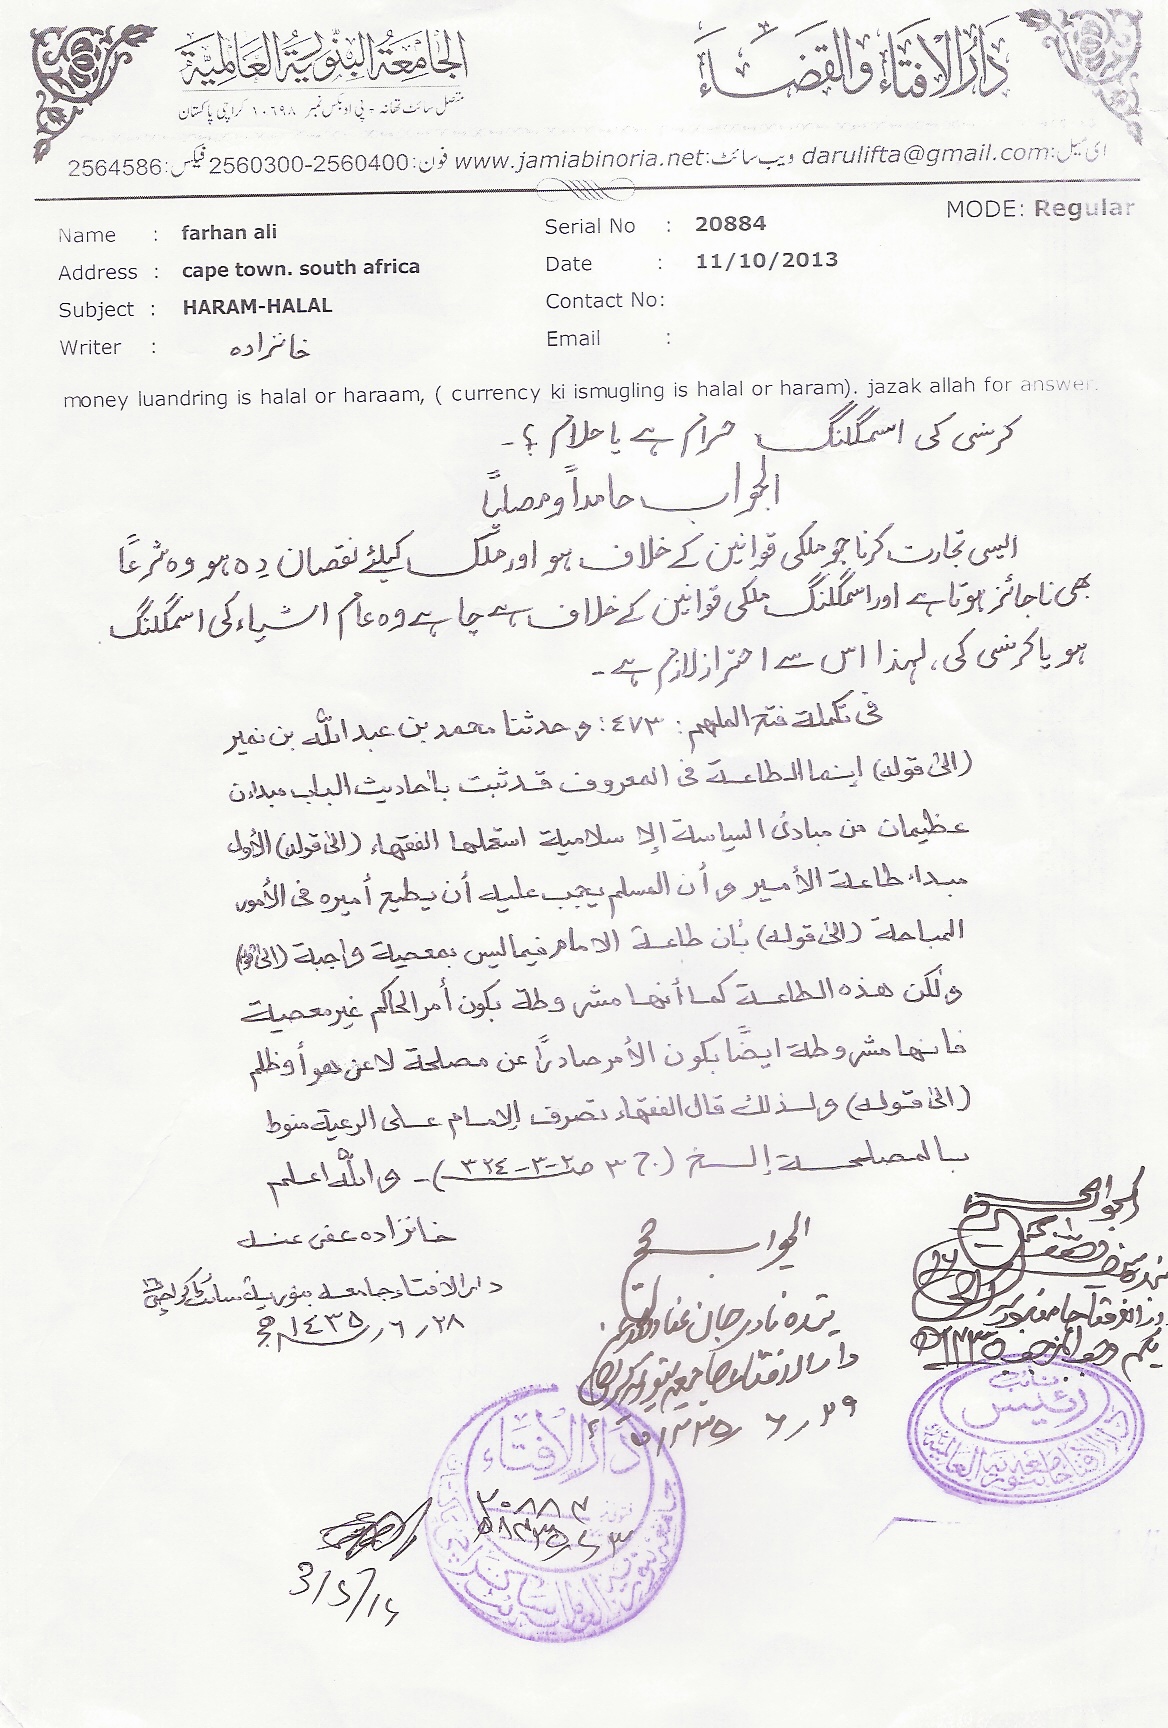 دار الافتاء والقضاء
الجامعة البنورية العالمية
متصل سائٹ تھانہ - پی او بکس نمبر ١٠٦٩٨ کراچی پاکستان
ای میل: darulifta@gmail.com ویب سائٹ: www.jamiabinoria.net فون: 2560300-2560400 فیکس: 2564586
MODE: Regular
Name : farhan ali
Serial No : 20884
Address : cape town. south africa
Date : 11/10/2013
Subject : HARAM-HALAL
Contact No:
Writer : خانزادہ
Email :
money luandring is halal or haraam, ( currency ki ismugling is halal or haram). jazak allah for answer.
کرنسی کی اسمگلنگ حرام ہے یا حلام ؟ ۔
الجواب حامداً ومصلیًا
ایسی تجارت کرنا جو ملکی قوانین کے خلاف ہو اور ملک کیلئے نقصان دہ ہو وہ شرعًا
بھی ناجائز ہوتا ہے اور اسمگلنگ ملکی قوانین کے خلاف ہے چاہے وہ عام اشیاء کی اسمگلنگ
ہو یا کرنسی کی، لہذا اس سے احتراز لازم ہے ۔
فی تکملة فتح الملهم: ٤٧٣: وحدثنا محمد بن عبد الله بن نمير
(الی قوله) إنما الطاعة فی المعروف قد ثبت بأحادیث الباب مبدان
عظیمان من مبادئ السیاسة الإسلامیة استعملها الفقهاء (الی قوله) الأول
مبداء طاعة الأمیر وأن المسلم یجب علیه أن یطیع أمیره فی الأمور
المباحة (الی قوله) بأن طاعة الامام فیما لیس بمعصیة واجبة (الی قوله)
ولکن هذه الطاعة کما أنها مشروطة بکون أمر الحاکم غیر معصیة
فانها مشروطة ایضًا بکون الأمر صادرًا عن مصلحة لا عن هوا أو ظلم
(الی قوله) ولذلك قال الفقهاء تصرف الإمام علی الرعیة منوط
بالمصلحة إلخ (ج ٣ ص ٣٢٤-٣-٢)۔ والله اعلم
خانزادہ عفی عنہ
دار الافتاء جامعہ بنوریہ سائٹ کراچی
٢٨ / ٦ / ١٤٣٥ ھ
الجواب صحیح
بندہ نادر جان
دار الافتاء جامعہ بنوریہ کراچی
٢٩ / ٦ / ١٤٣٥ ھ
الجواب
دار الافتاء جامعہ بنوریہ
یکم رجب المرجب ١٤٣٥ ھ
نائب
رئیس
دار الافتاء جامعہ بنوریہ العالمیہ
دار الافتاء
٢٠٨٨٤
3/5/14